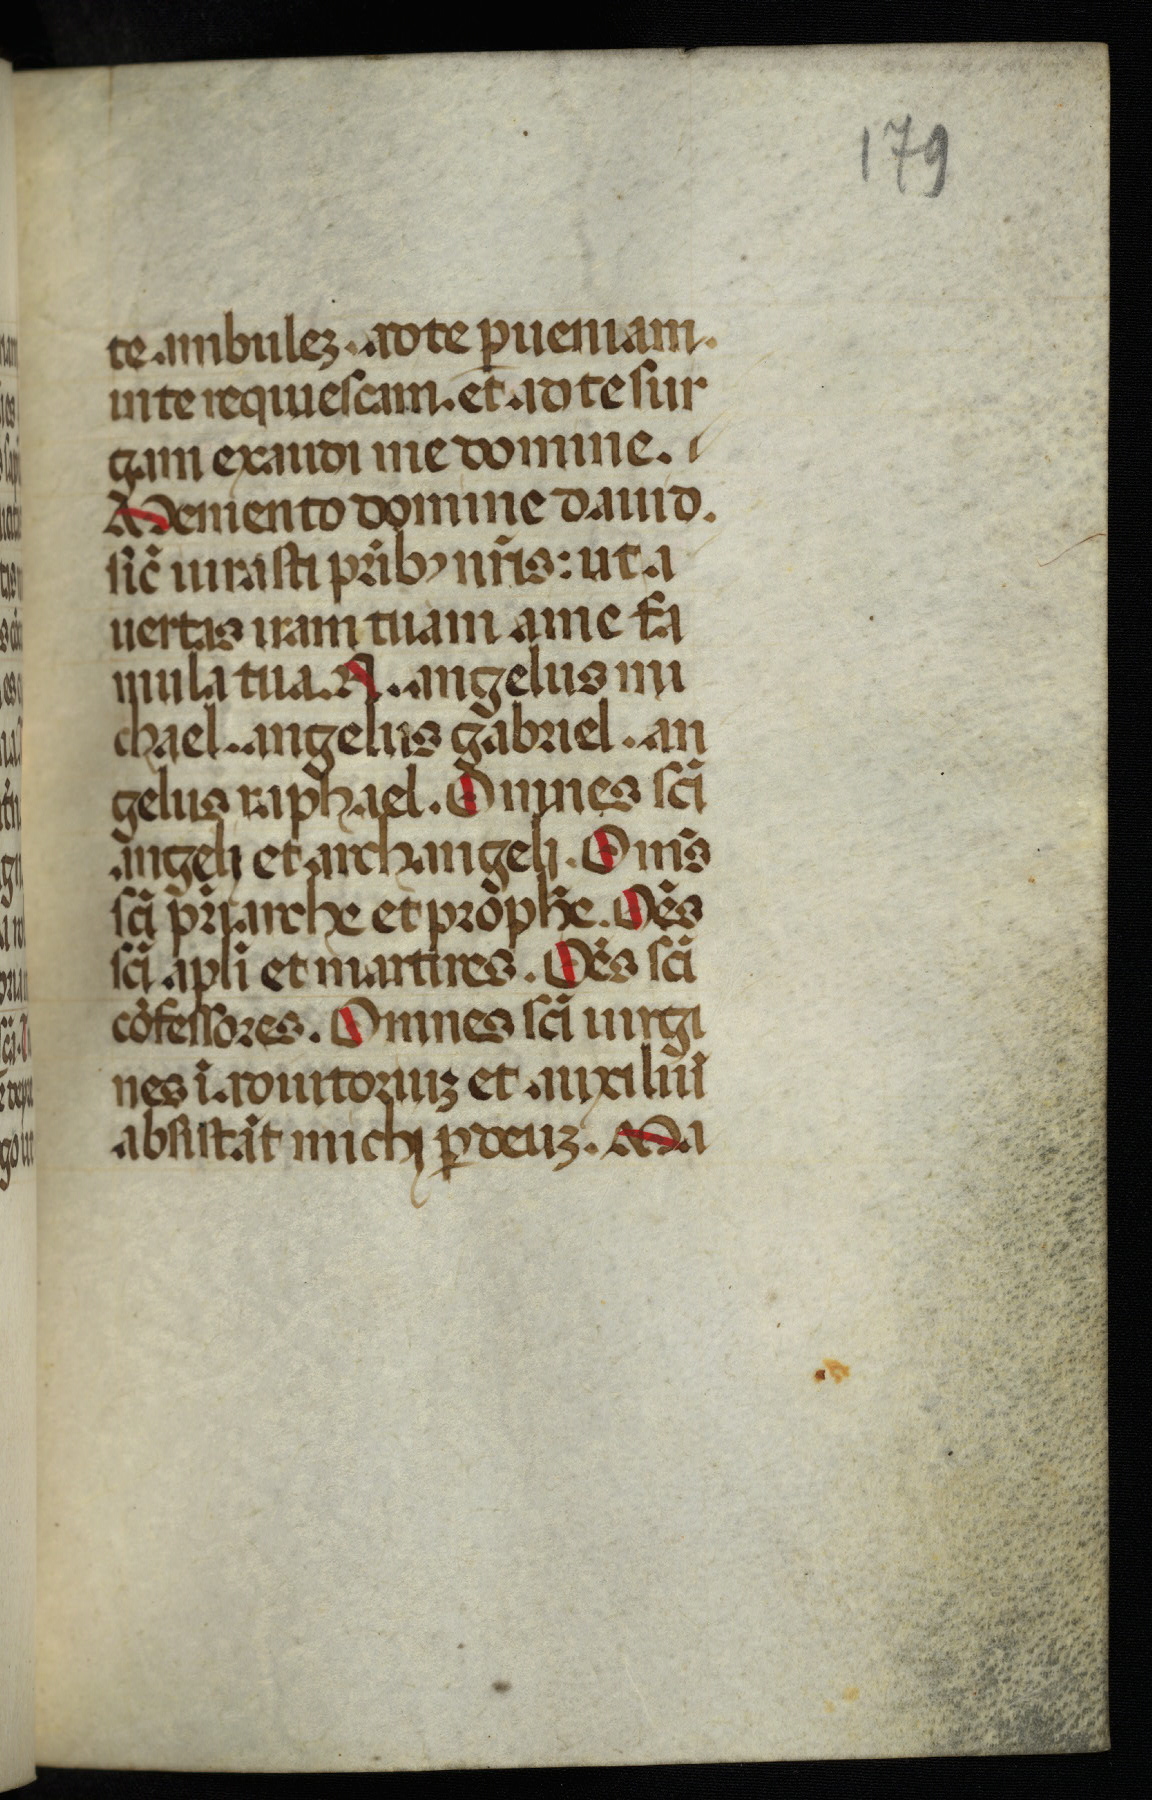 179
te ambulez. ad te ꝑueniam.
in te requiescam. et ad te sur
gam exaudi me domine.
Memento domine dauid.
sic̄ iurasti pr̄ibꝫ nr̄is: ut a
uertas iram tuam a me fa
mula tua. R. angelus mi
chael. angelus gabriel. an
gelus raphael. Omnes sc̄i
angeli et archangeli. Om̄s
sc̄i pr̄iarche et prōph̄e. Oēs
sc̄i apl̄i et martires. Oēs sc̄i
cōfessores. Omnes sc̄i uirgi
nes ī adiutoriuz et auxiliū
absistāt michi ꝑ deuz. Ma